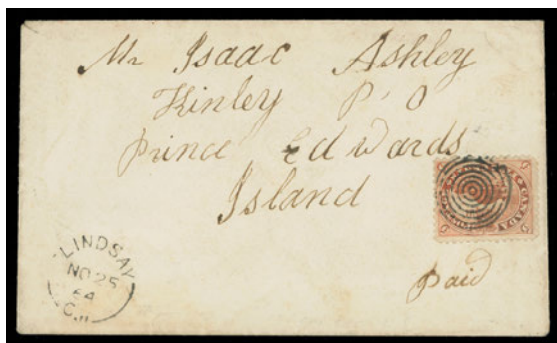 Mr Isaac Ashley
Kinley P. O
Prince Edwards
Island
CANADA
Paid
LINDSAY
NO 25
64